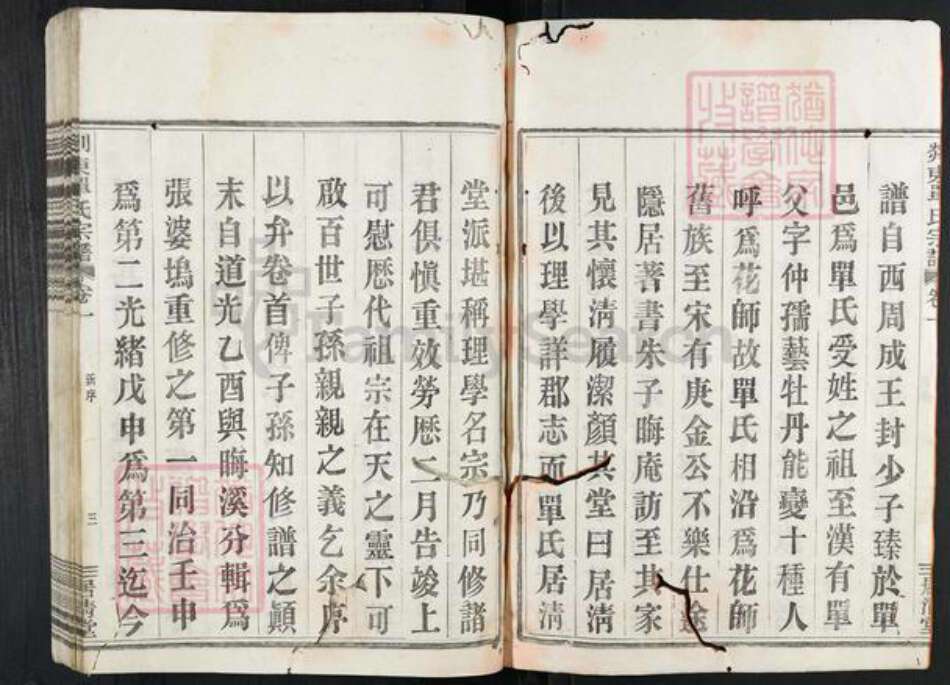 譜自西周成王封少子臻於單
邑爲單氏受姓之祖至漢有單
父字仲孺藝牡丹能變十種人
呼爲花師故單氏相沿爲花師
舊族至宋有庚金公不樂仕途
隱居著書朱子晦庵訪至其家
見其懷淸履潔顏其堂曰居淸
後以理學詳郡志而單氏居淸
堂派堪稱理學名宗乃同修諸
君俱愼重效勞歷二月告竣上
可慰歷代祖宗在天之靈下可
啟百世子孫親親之義乞余序
以弁卷首俾子孫知修譜之顚
末自道光乙酉與晦溪分輯爲
張婆塢重修之第一同治壬申
爲第二光緖戊申爲第三迄今
剡東單氏宗譜 卷一
新序
三
居淸堂
FamilySearch